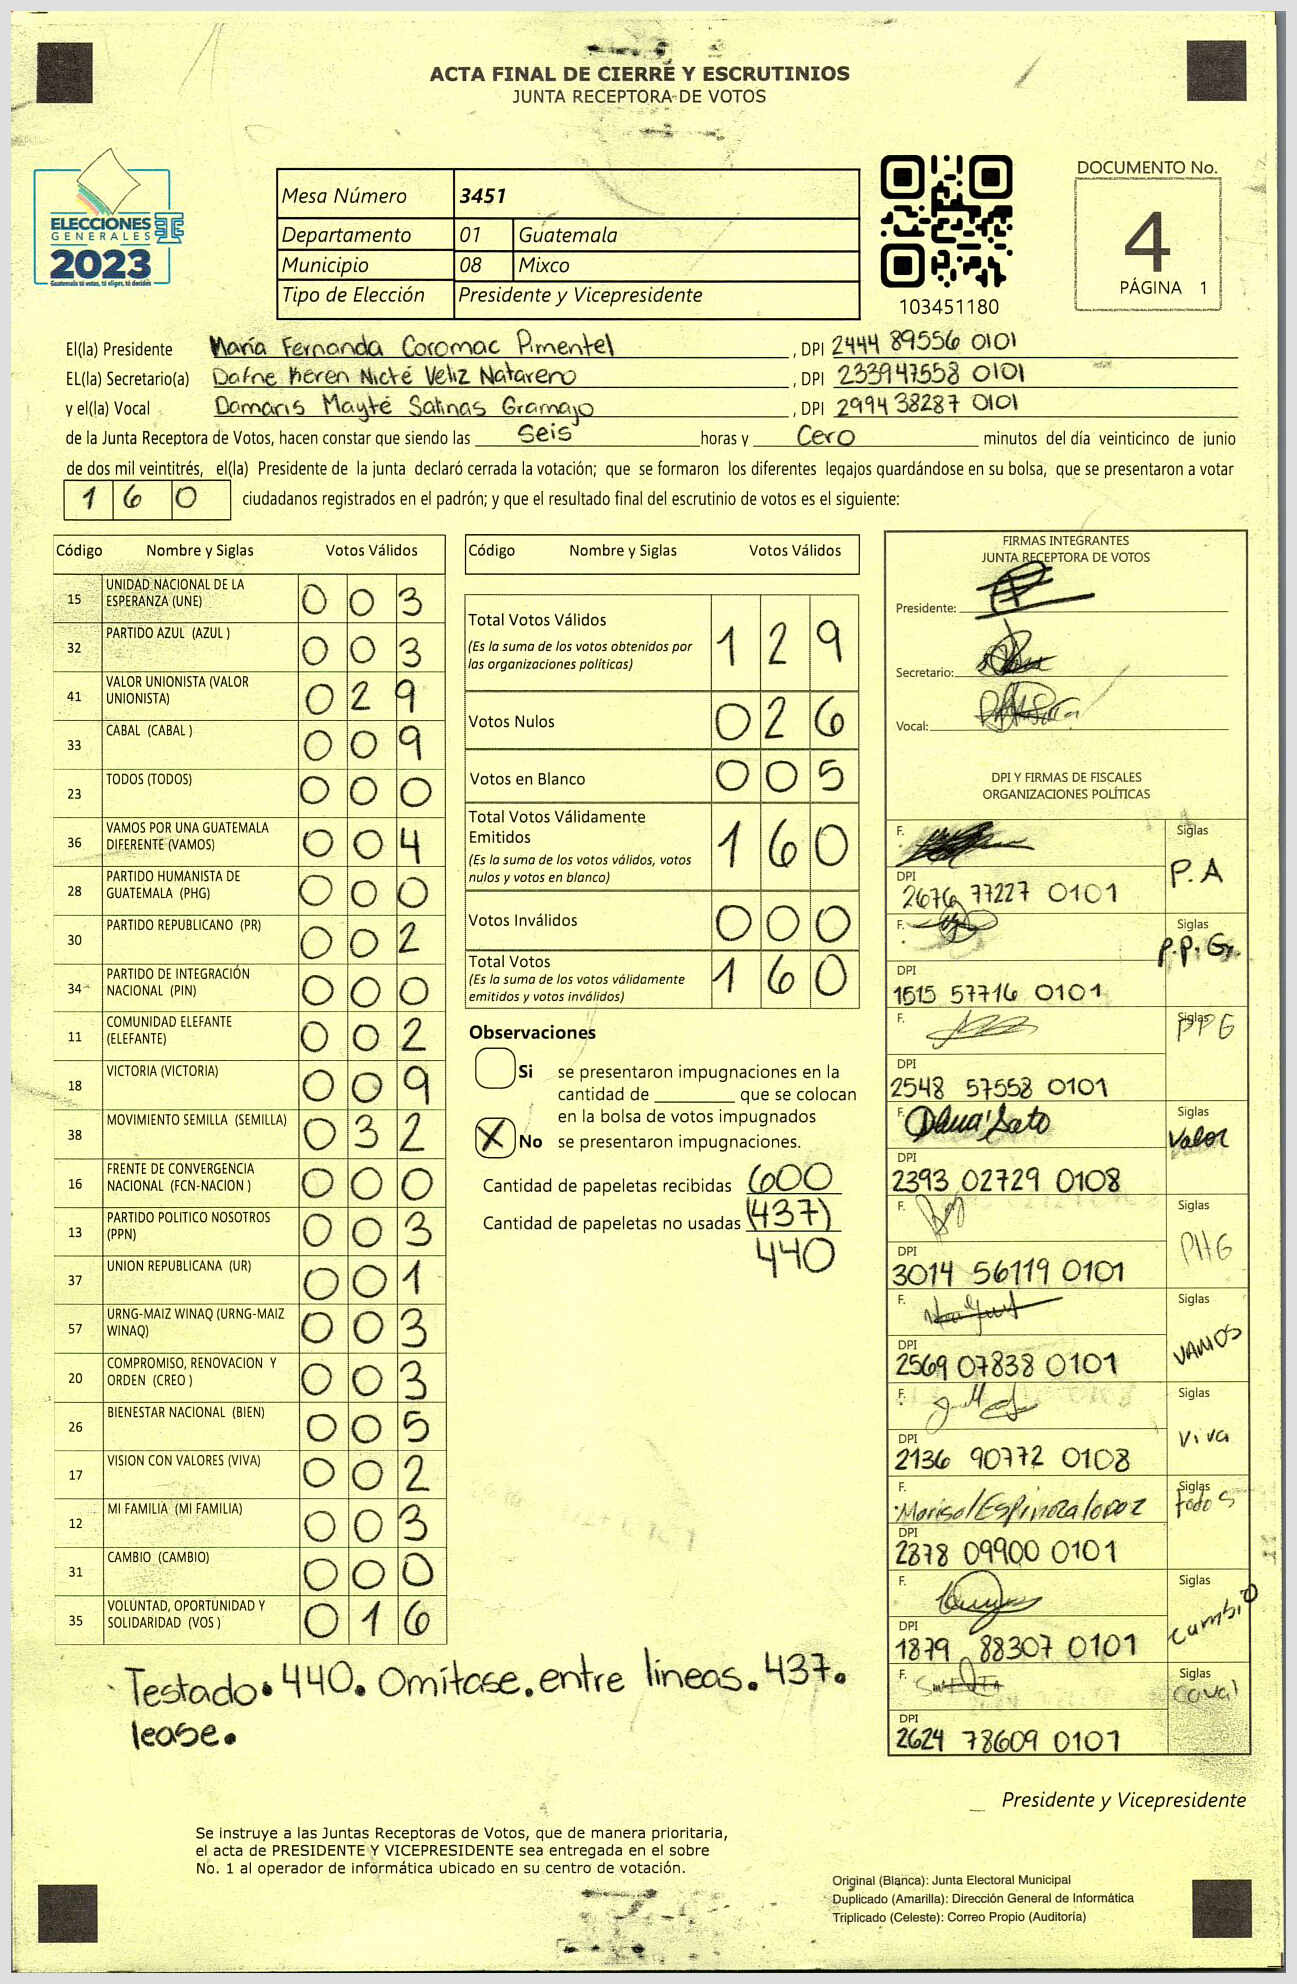 ACTA FINAL DE CIERRE Y ESCRUTINIOS
JUNTA RECEPTORA DE VOTOS
ELECCIONES
GENERALES
2023
Guatemala tú votas, tú eliges, tú decides
Mesa Número 3451
Departamento 01 Guatemala
Municipio 08 Mixco
Tipo de Elección Presidente y Vicepresidente
103451180
DOCUMENTO No.
4
PÁGINA 1
El(la) Presidente María Fernanda Coromac Pimentel, DPI 2444 89556 0101
EL(la) Secretario(a) Dafne Keren Nicté Veliz Natareno, DPI 233947558 0101
y el(la) Vocal Damaris Mayté Salinas Gramajo, DPI 2994 38287 0101
de la Junta Receptora de Votos, hacen constar que siendo las Seis horas y Cero minutos del día veinticinco de junio
de dos mil veintitrés, el(la) Presidente de la junta declaró cerrada la votación; que se formaron los diferentes legajos guardándose en su bolsa, que se presentaron a votar
1 6 0 ciudadanos registrados en el padrón; y que el resultado final del escrutinio de votos es el siguiente:
Código Nombre y Siglas Votos Válidos
15 UNIDAD NACIONAL DE LA ESPERANZA (UNE) 0 0 3
32 PARTIDO AZUL (AZUL ) 0 0 3
41 VALOR UNIONISTA (VALOR UNIONISTA) 0 2 9
33 CABAL (CABAL ) 0 0 9
23 TODOS (TODOS) 0 0 0
36 VAMOS POR UNA GUATEMALA DIFERENTE (VAMOS) 0 0 4
28 PARTIDO HUMANISTA DE GUATEMALA (PHG) 0 0 0
30 PARTIDO REPUBLICANO (PR) 0 0 2
34 PARTIDO DE INTEGRACIÓN NACIONAL (PIN) 0 0 0
11 COMUNIDAD ELEFANTE (ELEFANTE) 0 0 2
18 VICTORIA (VICTORIA) 0 0 9
38 MOVIMIENTO SEMILLA (SEMILLA) 0 3 2
16 FRENTE DE CONVERGENCIA NACIONAL (FCN-NACION ) 0 0 0
13 PARTIDO POLITICO NOSOTROS (PPN) 0 0 3
37 UNION REPUBLICANA (UR) 0 0 1
57 URNG-MAIZ WINAQ (URNG-MAIZ WINAQ) 0 0 3
20 COMPROMISO, RENOVACION Y ORDEN (CREO ) 0 0 3
26 BIENESTAR NACIONAL (BIEN) 0 0 5
17 VISION CON VALORES (VIVA) 0 0 2
12 MI FAMILIA (MI FAMILIA) 0 0 3
31 CAMBIO (CAMBIO) 0 0 0
35 VOLUNTAD, OPORTUNIDAD Y SOLIDARIDAD (VOS ) 0 1 6
Código Nombre y Siglas Votos Válidos
Total Votos Válidos 1 2 9
(Es la suma de los votos obtenidos por
las organizaciones políticas)
Votos Nulos 0 2 6
Votos en Blanco 0 0 5
Total Votos Válidamente
Emitidos 1 6 0
(Es la suma de los votos válidos, votos
nulos y votos en blanco)
Votos Inválidos 0 0 0
Total Votos 1 6 0
(Es la suma de los votos válidamente
emitidos y votos inválidos)
Observaciones
Si se presentaron impugnaciones en la
cantidad de que se colocan
en la bolsa de votos impugnados
X No se presentaron impugnaciones.
Cantidad de papeletas recibidas 600
Cantidad de papeletas no usadas (437)
440
FIRMAS INTEGRANTES
JUNTA RECEPTORA DE VOTOS
Presidente:
Secretario:
Vocal:
DPI Y FIRMAS DE FISCALES
ORGANIZACIONES POLÍTICAS
F. Siglas P.A
DPI 2676 77227 0101
F. Siglas P.P.G.
DPI 1515 57716 0101
F. Siglas PPG
DPI 2548 57558 0101
F. Siglas Valor
DPI 2393 02729 0108
F. Siglas PHG
DPI 3014 56119 0101
F. Siglas VAMOS
DPI 2569 07838 0101
F. Siglas Viva
DPI 2136 90772 0108
F. Marisol Espinoza Lopez Siglas todos
DPI 2378 09900 0101
F. Siglas Cambio
DPI 1879 88307 0101
F. Siglas Caval
DPI 2624 78609 0101
Testado. 440. Omítase. entre líneas. 437.
lease.
Presidente y Vicepresidente
Se instruye a las Juntas Receptoras de Votos, que de manera prioritaria,
el acta de PRESIDENTE Y VICEPRESIDENTE sea entregada en el sobre
No. 1 al operador de informática ubicado en su centro de votación.
Original (Blanca): Junta Electoral Municipal
Duplicado (Amarilla): Dirección General de Informática
Triplicado (Celeste): Correo Propio (Auditoría)